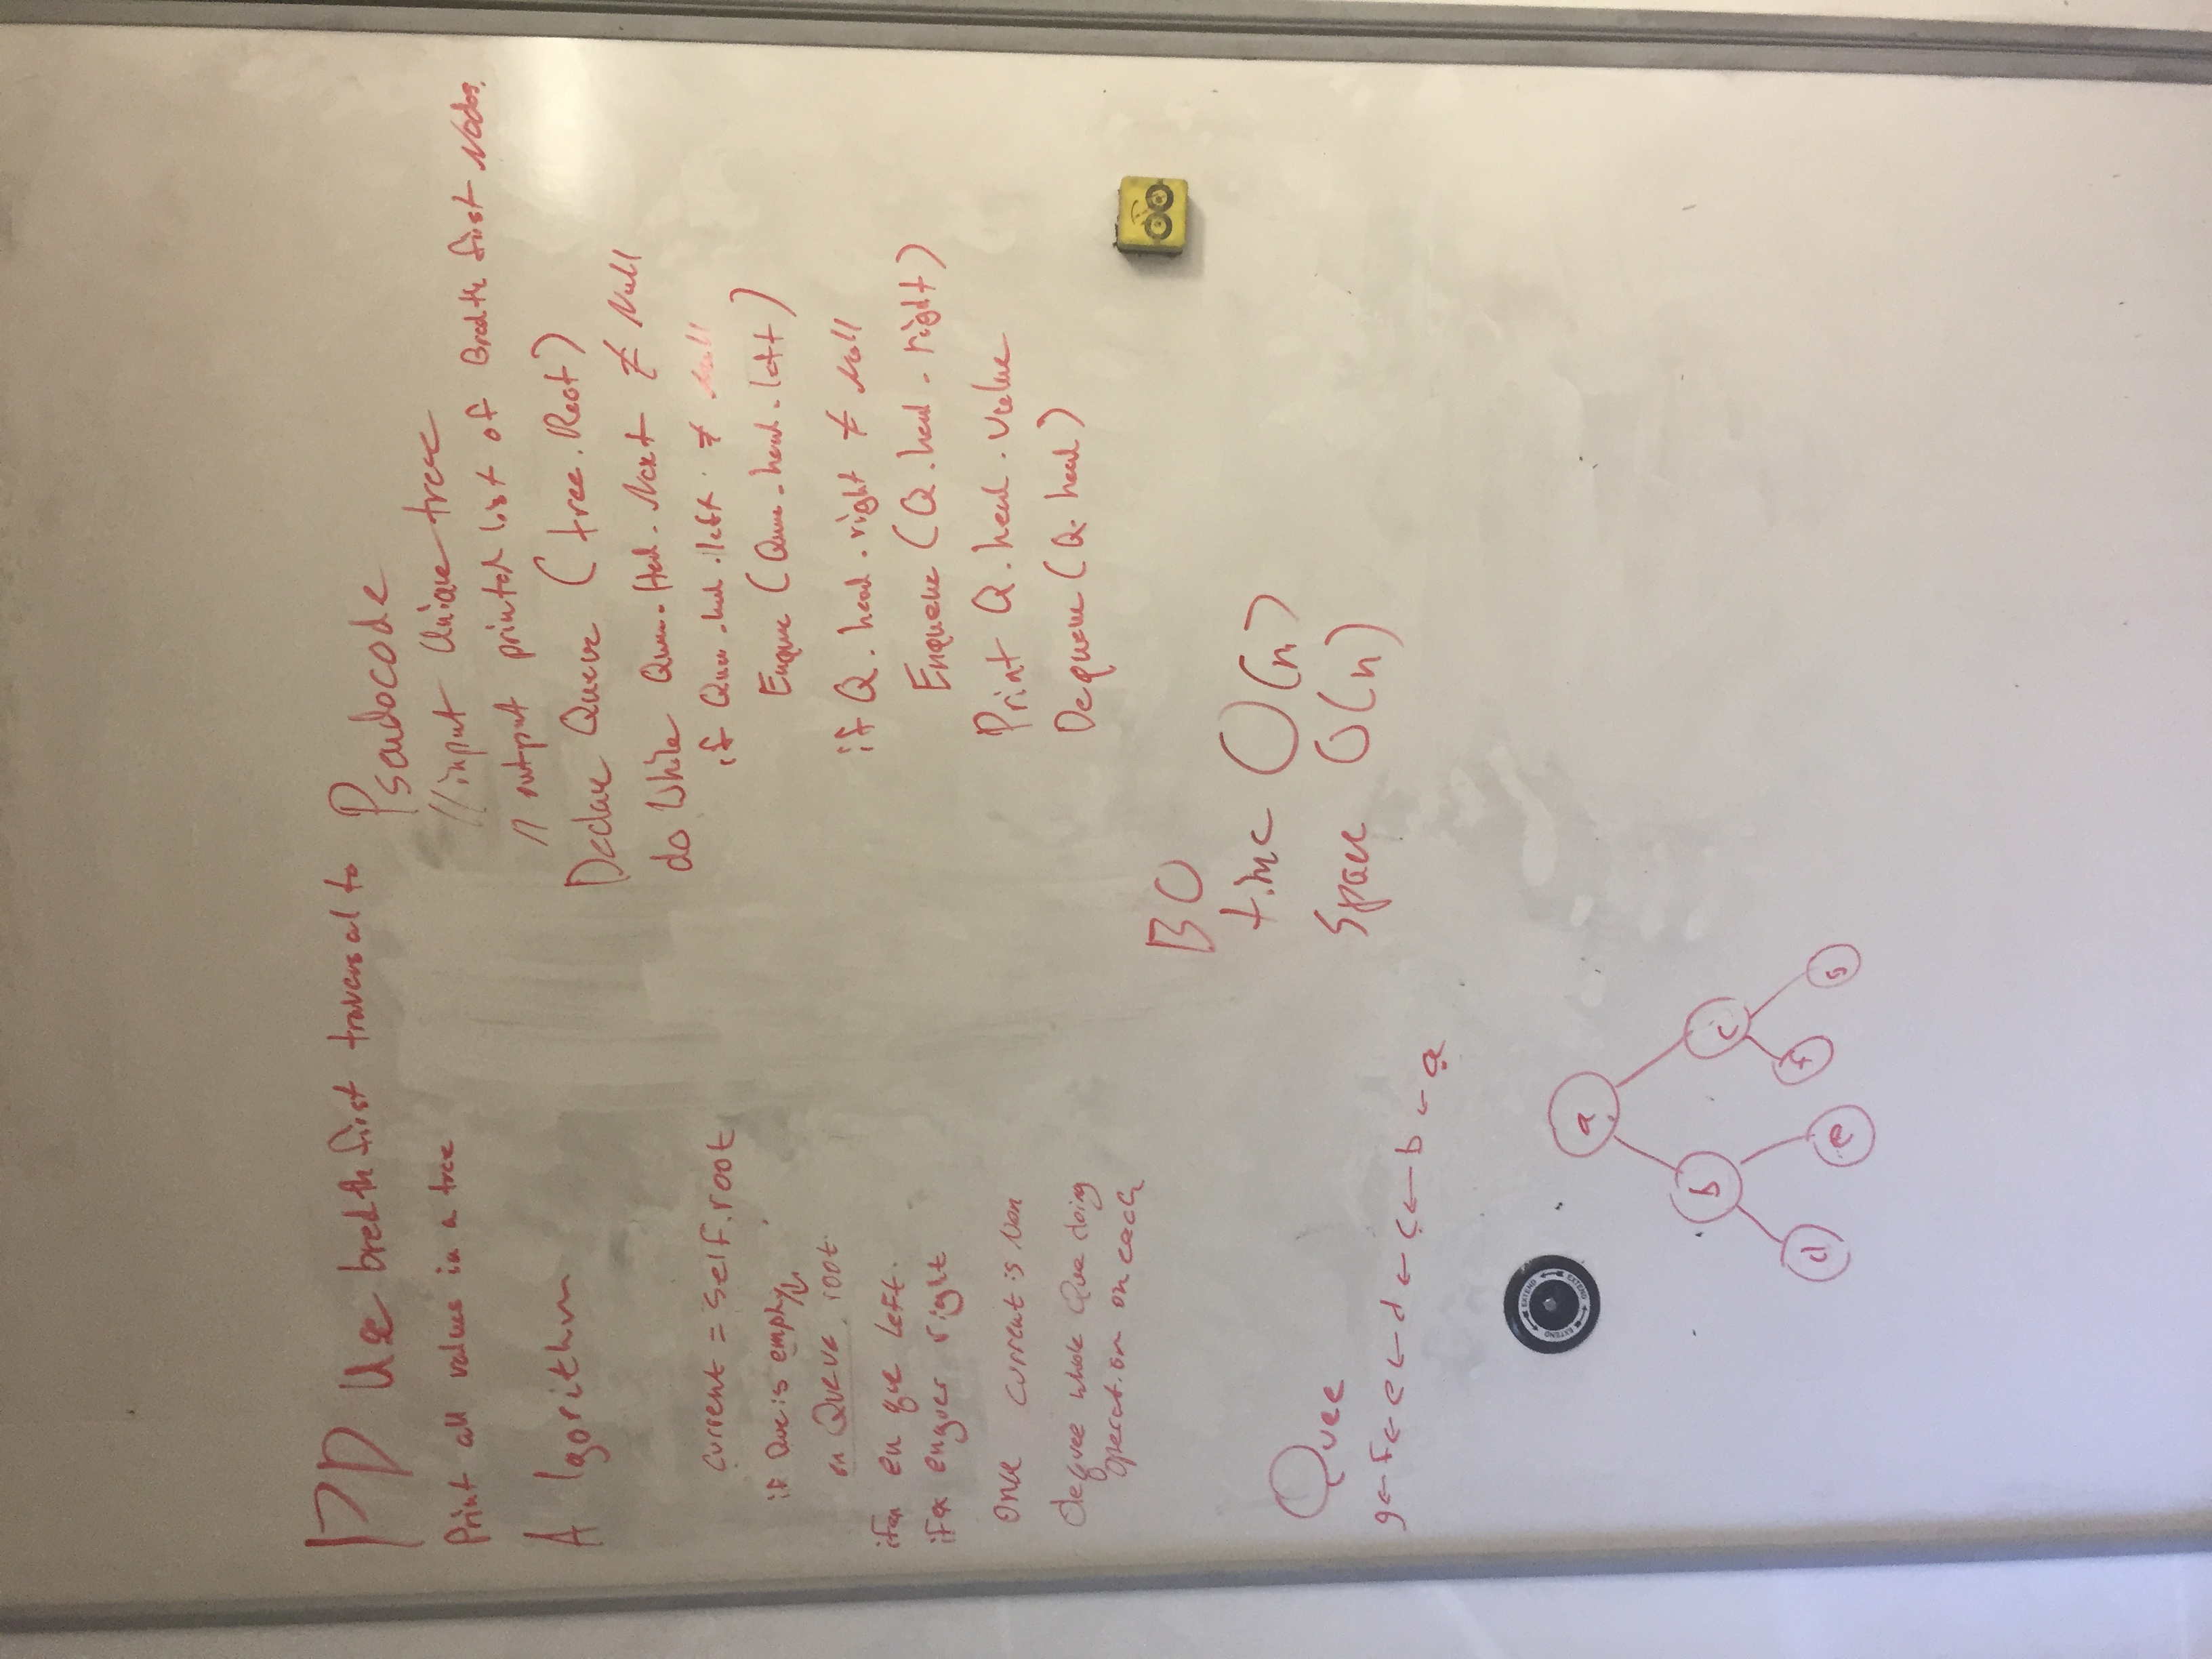 PD Use bredth first traversal to
Print all values in a tree
Algorithm
current = self.root
if Que is emphy
en Queue root.
en que left.
enquer right
Once current is Non
dequee whole Que doing
operation on each
Quee
g ← f ← e ← d ← c ← b ← a
EXTEND EXTEND EXTEND
a
b c
d e f g
Pseudocode
// input Unique tree
// output printed list of Bredth first Nodes.
Declare Queue (tree.Root)
do While Queue.Head.Next ≠ Null
if Queue.head.left ≠ Null
Enqueue (Queue.head.left)
if Q.head.right ≠ Null
Enqueue (Q.head.right)
Print Q.head.value
Dequeue (Q.head)
BO
time O(n)
Space O(n)